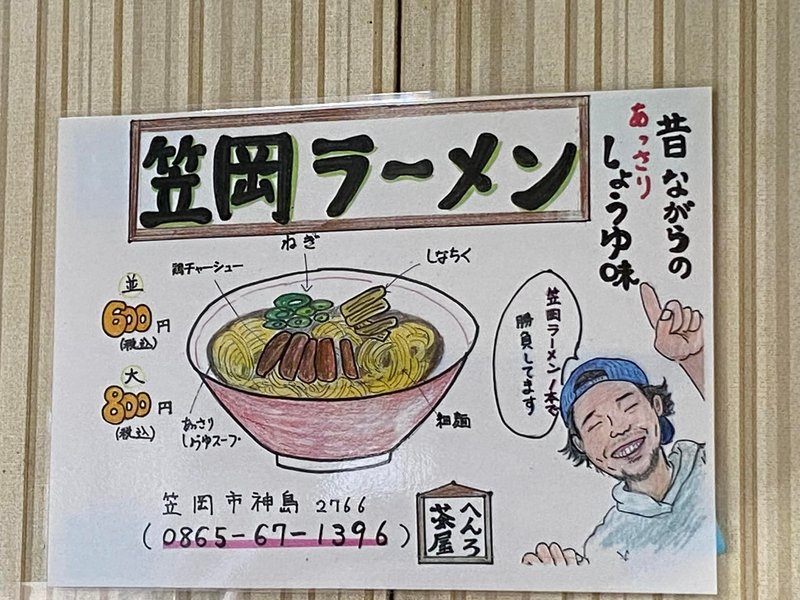 笠岡ラーメン
昔ながらの
あっさり
しょうゆ味
ねぎ
鶏チャーシュー
しなちく
並
600円
(税込)
大
800円
(税込)
あっさり
しょうゆスープ
細麺
笠岡ラーメン1本で
勝負してます
笠岡市神島 2766
(0865-67-1396)
へんろ
茶屋